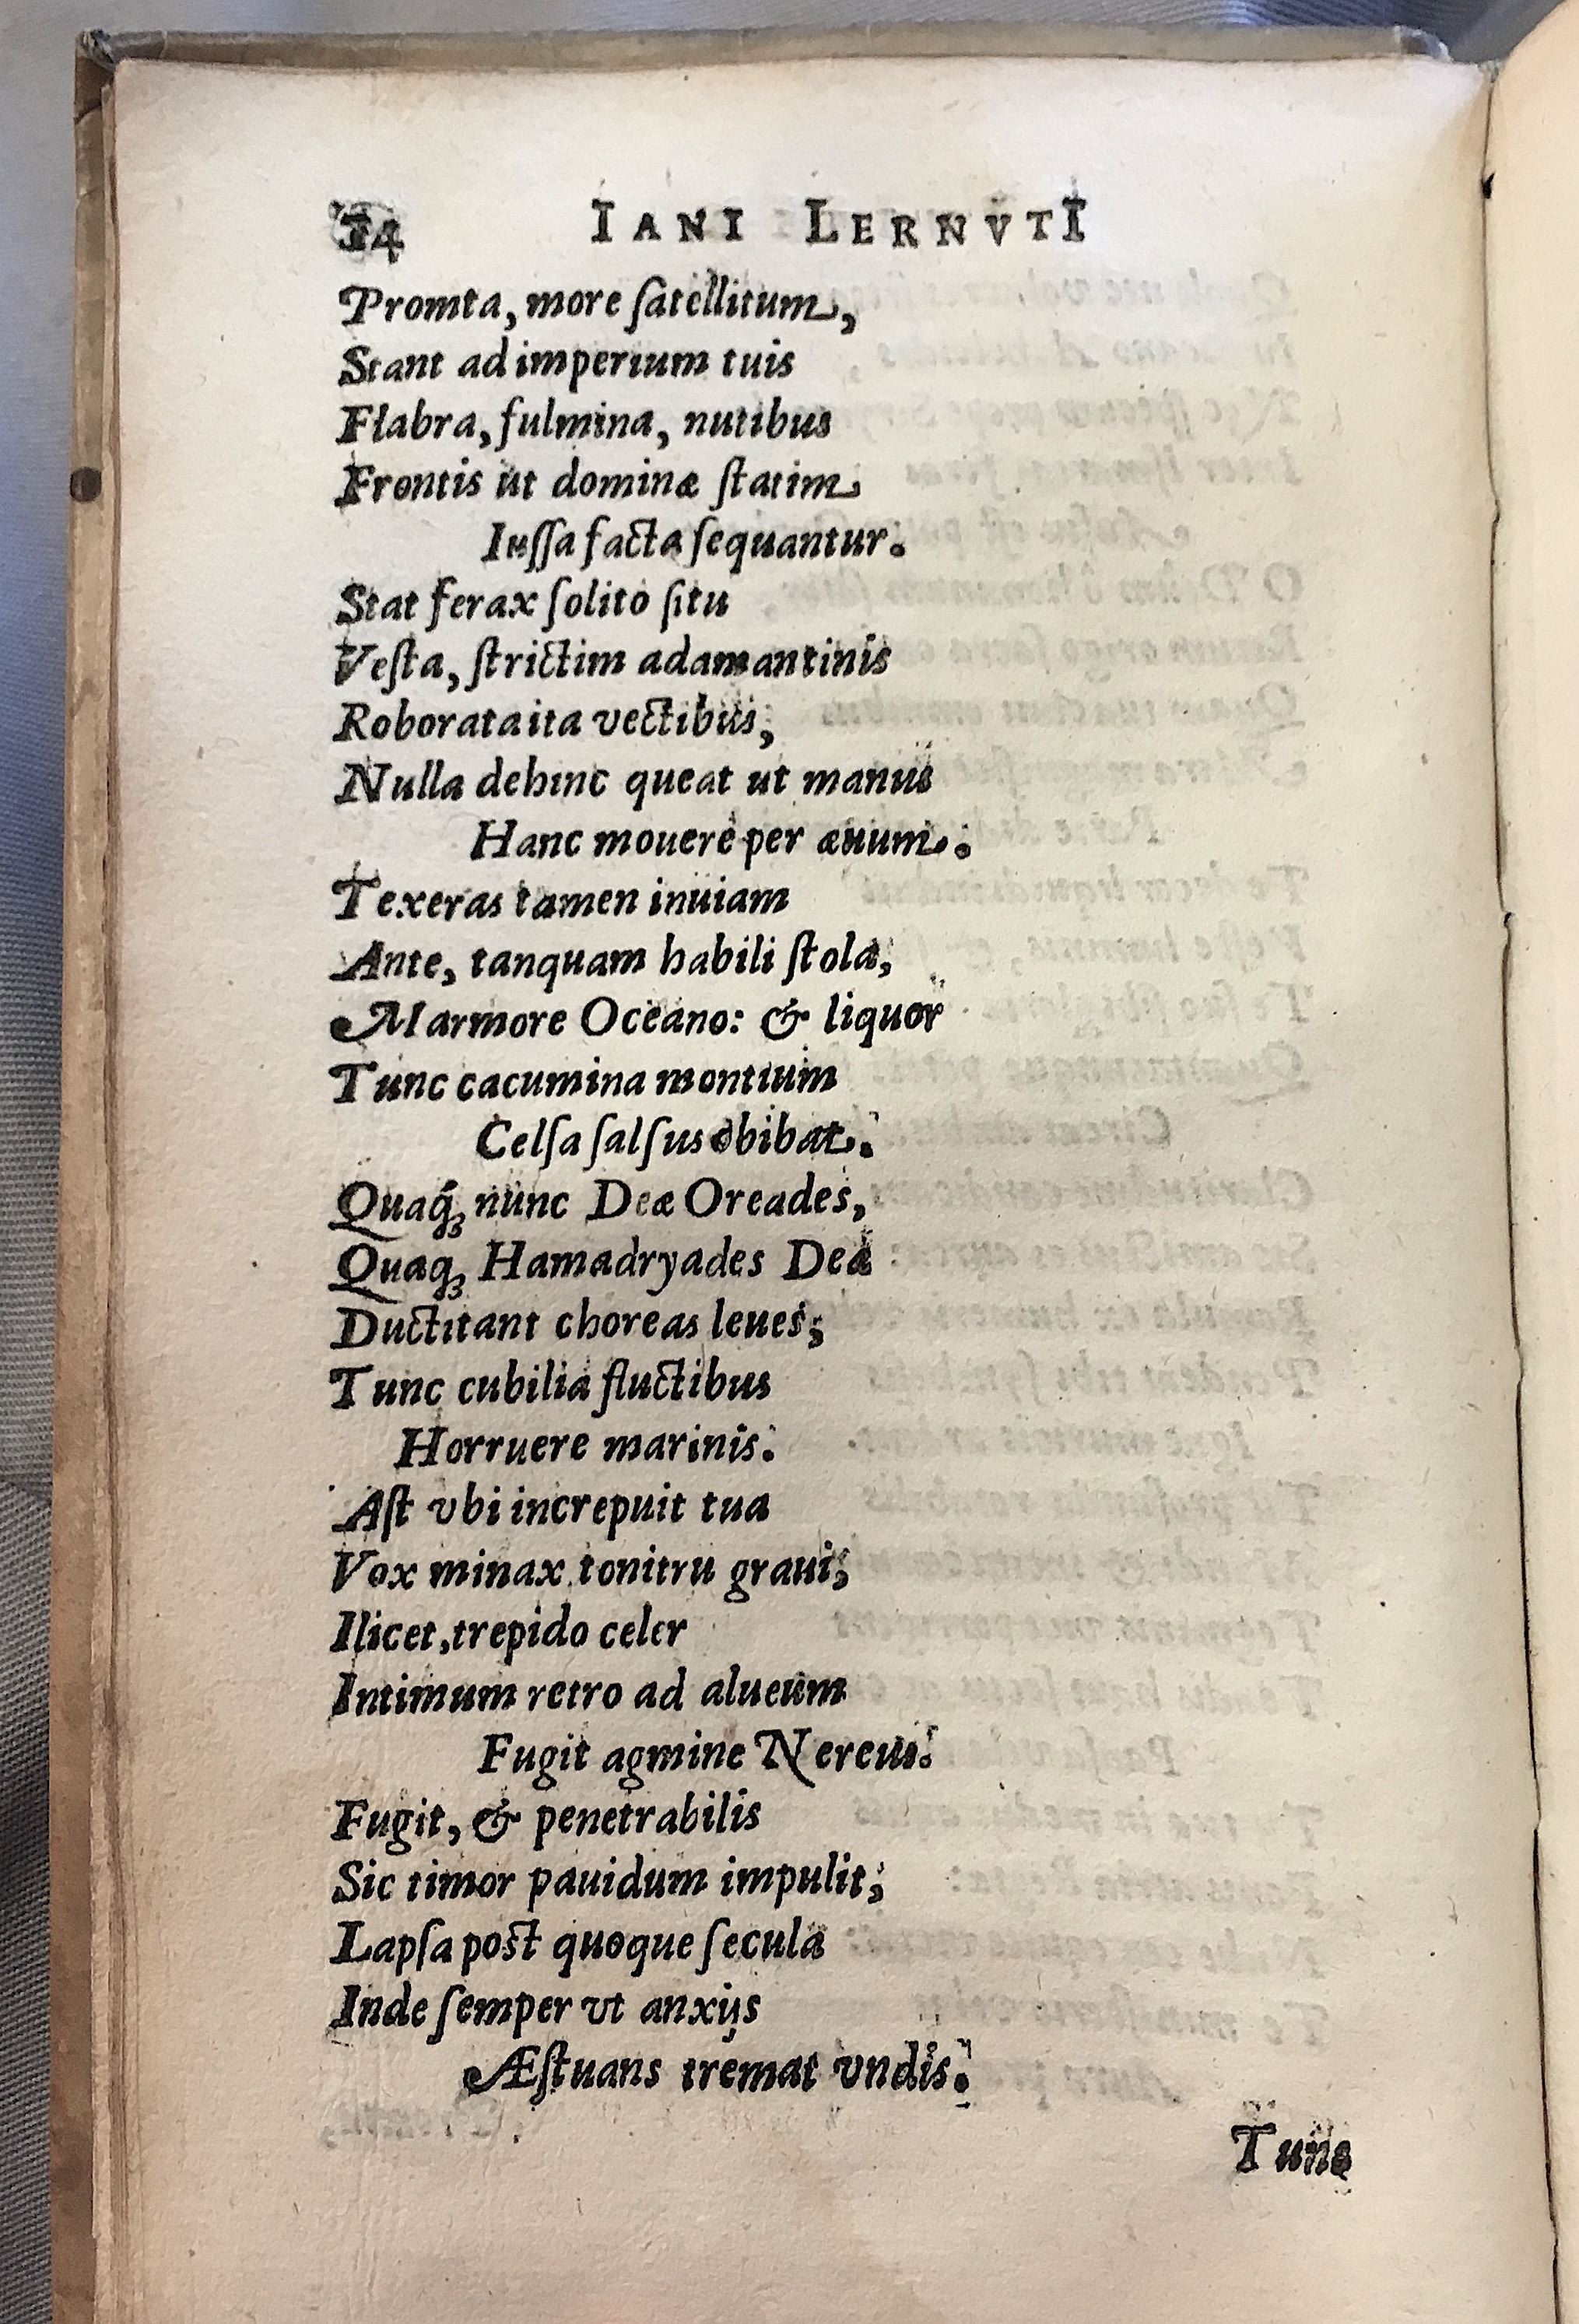 34 IANI LERNVTI
Promta, more ſatellitum,
Stant ad imperium tuis
Flabra, fulmina, nutibus
Frontis ut dominæ ſtatim
Iuſſa facta ſequantur.
Stat ferax ſolito ſitu
Veſta, ſtrictim adamantinis
Roborata ita vectibus,
Nulla dehinc queat ut manus
Hanc mouere per æuum.
Texeras tamen inuiam
Ante, tanquam habili ſtola,
Marmore Oceano: & liquor
Tunc cacumina montium
Celſa ſalſus obibat.
Quaq́; nunc Deæ Oreades,
Quaq; Hamadryades Deæ
Ductitant choreas leues;
Tunc cubilia fluctibus
Horruere marinis.
Aſt vbi increpuit tua
Vox minax tonitru graui;
Ilicet, trepido celer
Intimum retro ad alueum
Fugit agmine Nereus.
Fugit, & penetrabilis
Sic timor pauidum impulit;
Lapſa poſt quoque ſecula
Inde ſemper vt anxijs
Æſtuans tremat vndis.
Tunc